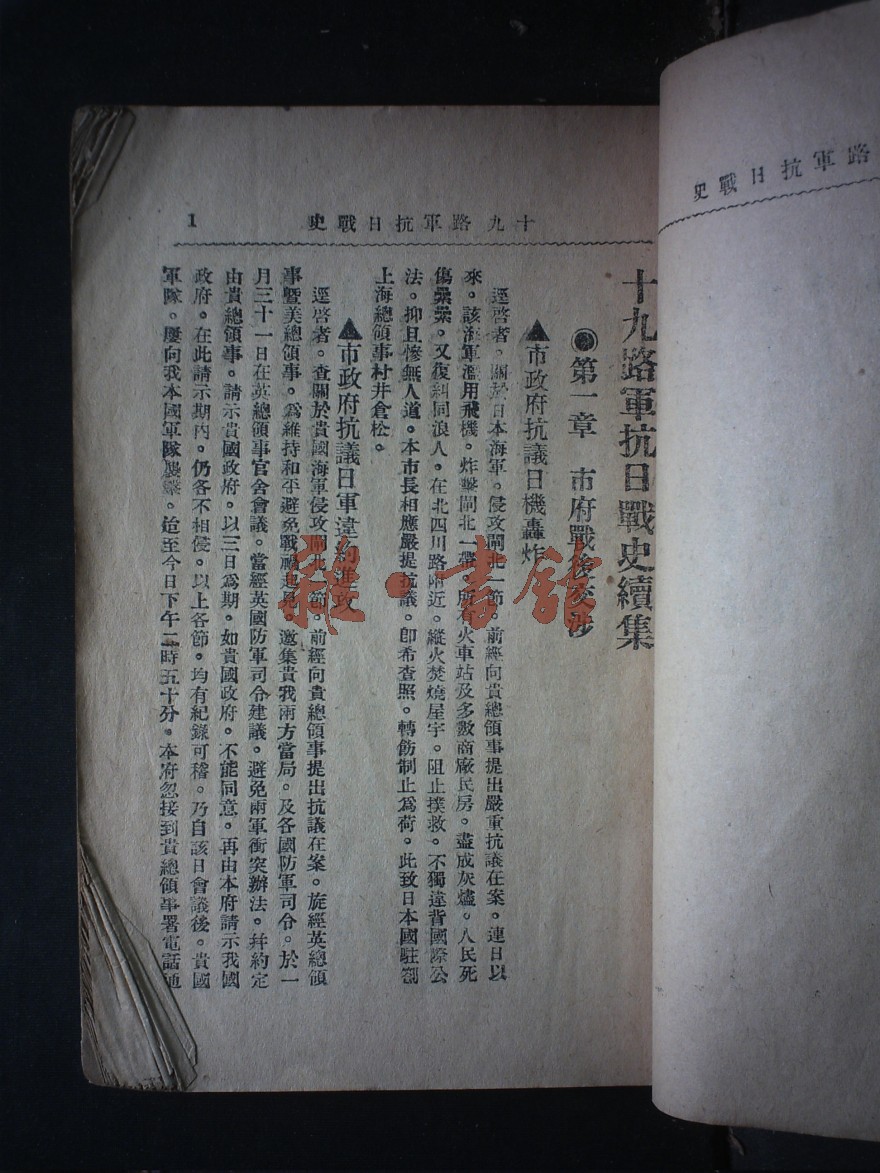 十九路軍抗日戰史
1
十九路軍抗日戰史續集
第一章　市府戰後交涉
▲市政府抗議日機轟炸
逕啓者。關於日本海軍。侵攻閘北一節。前經向貴總領事提出嚴重抗議在案。連日以
來。該海軍濫用飛機。炸擊閘北一帶。所有火車站及多數商廠民房。盡成灰燼。人民死
傷纍纍。又復糾同浪人。在北四川路附近。縱火焚燒屋宇。阻止撲救。不獨違背國際公
法。抑且慘無人道。本市長相應嚴提抗議。卽希查照。轉飭制止爲荷。此致日本國駐劄
上海總領事村井倉松。
▲市政府抗議日軍違約進攻
逕啓者。查關於貴國海軍侵攻閘北一節。前經向貴總領事提出抗議在案。旋經英總領
事暨美總領事。爲維持和平避免戰禍起見。邀集貴我兩方當局。及各國防軍司令。於一
月三十一日在英總領事官舍會議。當經英國防軍司令建議。避免兩軍衝突辦法。幷約定
由貴總領事。請示貴國政府。以三日爲期。如貴國政府。不能同意。再由本府請示我國
政府。在此請示期內。仍各不相侵。以上各節。均有紀錄可稽。乃自該日會議後。貴國
軍隊。屢向我本國軍隊襲擊。迨至今日下午二時五十分。本府忽接到貴總領事署電話通
路軍抗日戰史
雜·書館